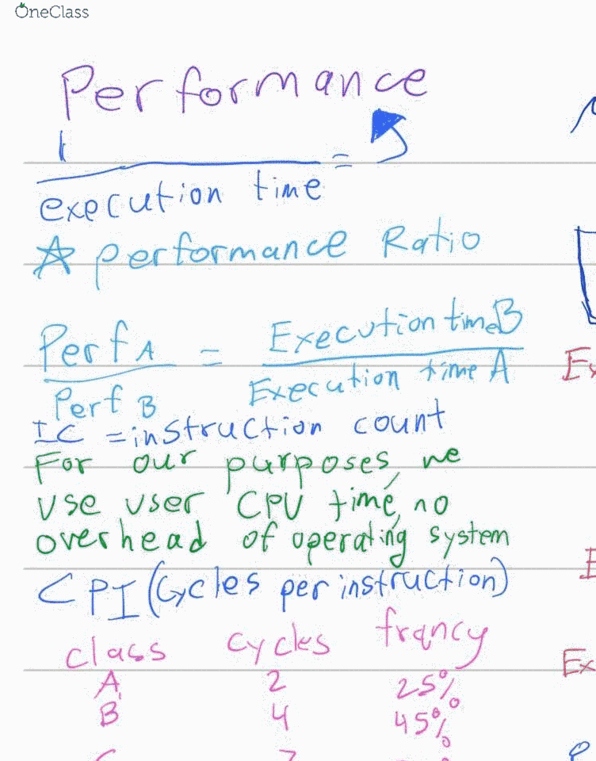 OneClass
Performance
1
execution time =
performance Ratio
Perf A / Perf B = Execution time B / Execution time A
IC = instruction count
For our purposes, we
use user CPU time, no
overhead of operating system
CPI (Cycles per instruction)
class cycles frqncy
A 2 25%
B 4 45%
Ex
E
Ex